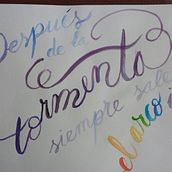 Después
de la
tormenta
siempre sale
el arco i